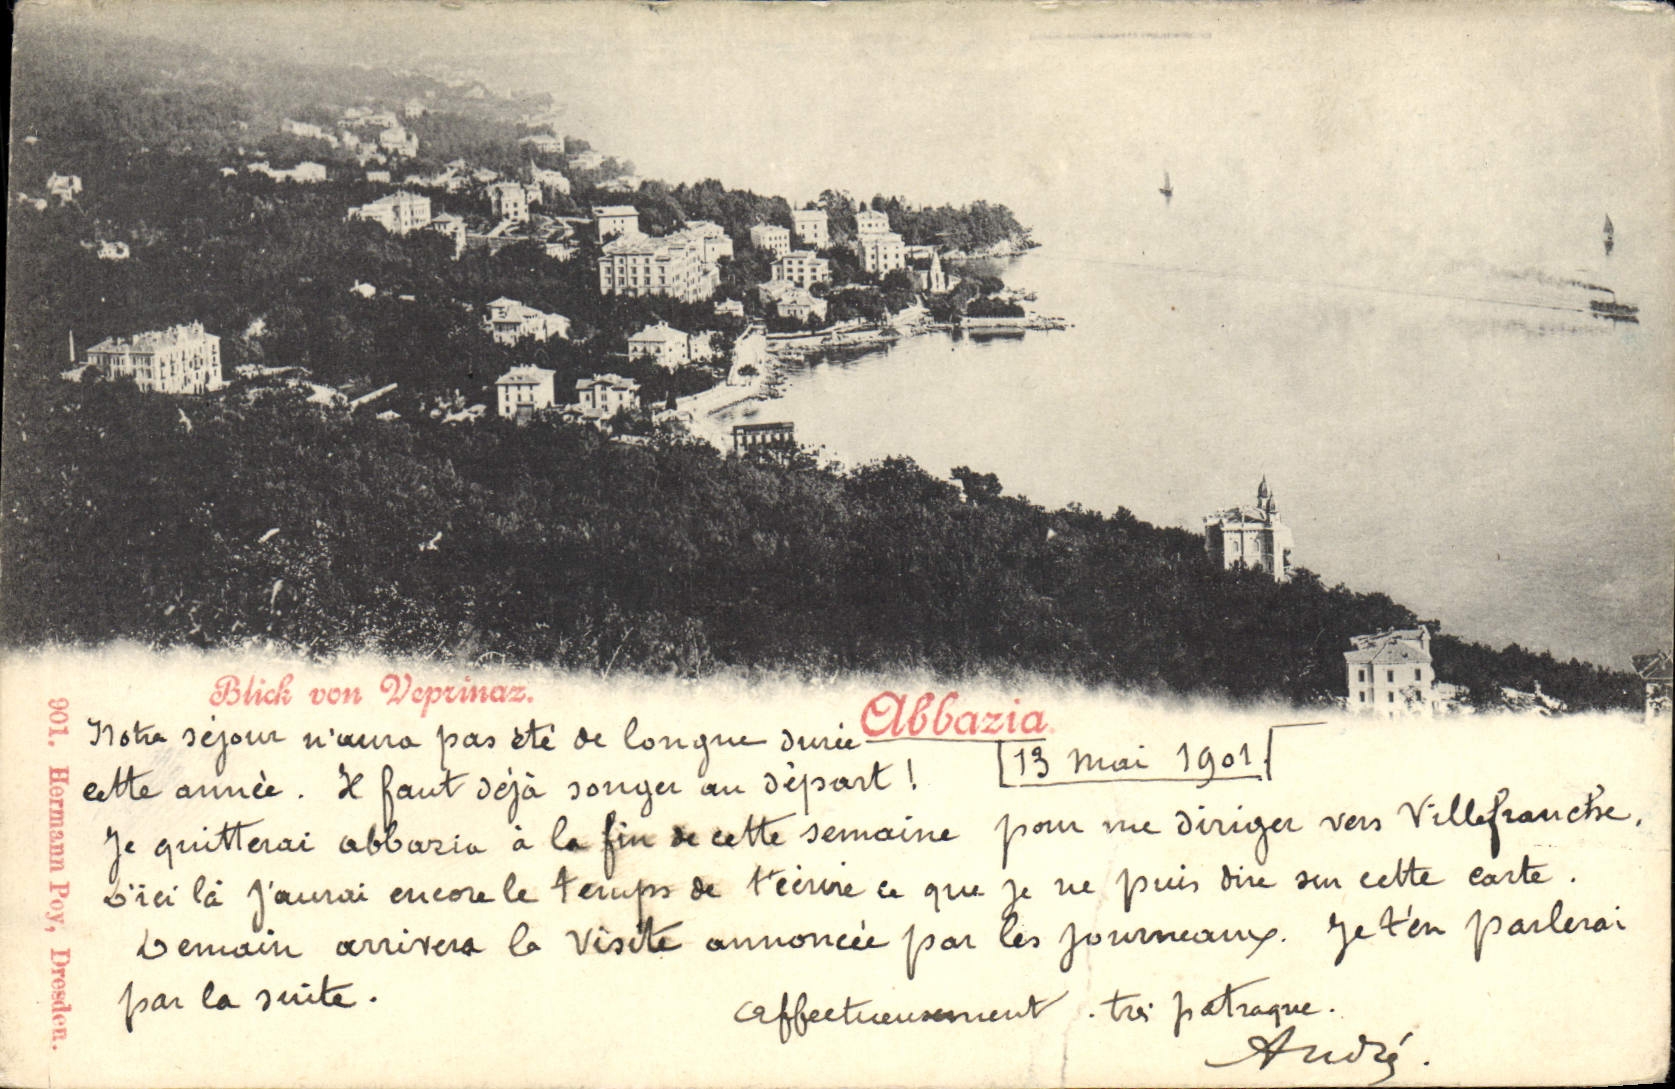 Blick von Veprinaz.
Abbazia.
901. Hermann Poy, Dresden.
13 mai 1901.
Notre séjour n'aura pas été de longue durée
cette année. Il faut déjà songer au départ !
Je quitterai abbazia à la fin de cette semaine pour me diriger vers Villefranche.
D'ici là j'aurai encore le temps de t'écrire ce que je ne puis dire sur cette carte.
Demain arrivera la visite annoncée par les journeaux. Je t'en parlerai
par la suite.
affectueusement . très patraque.
André.